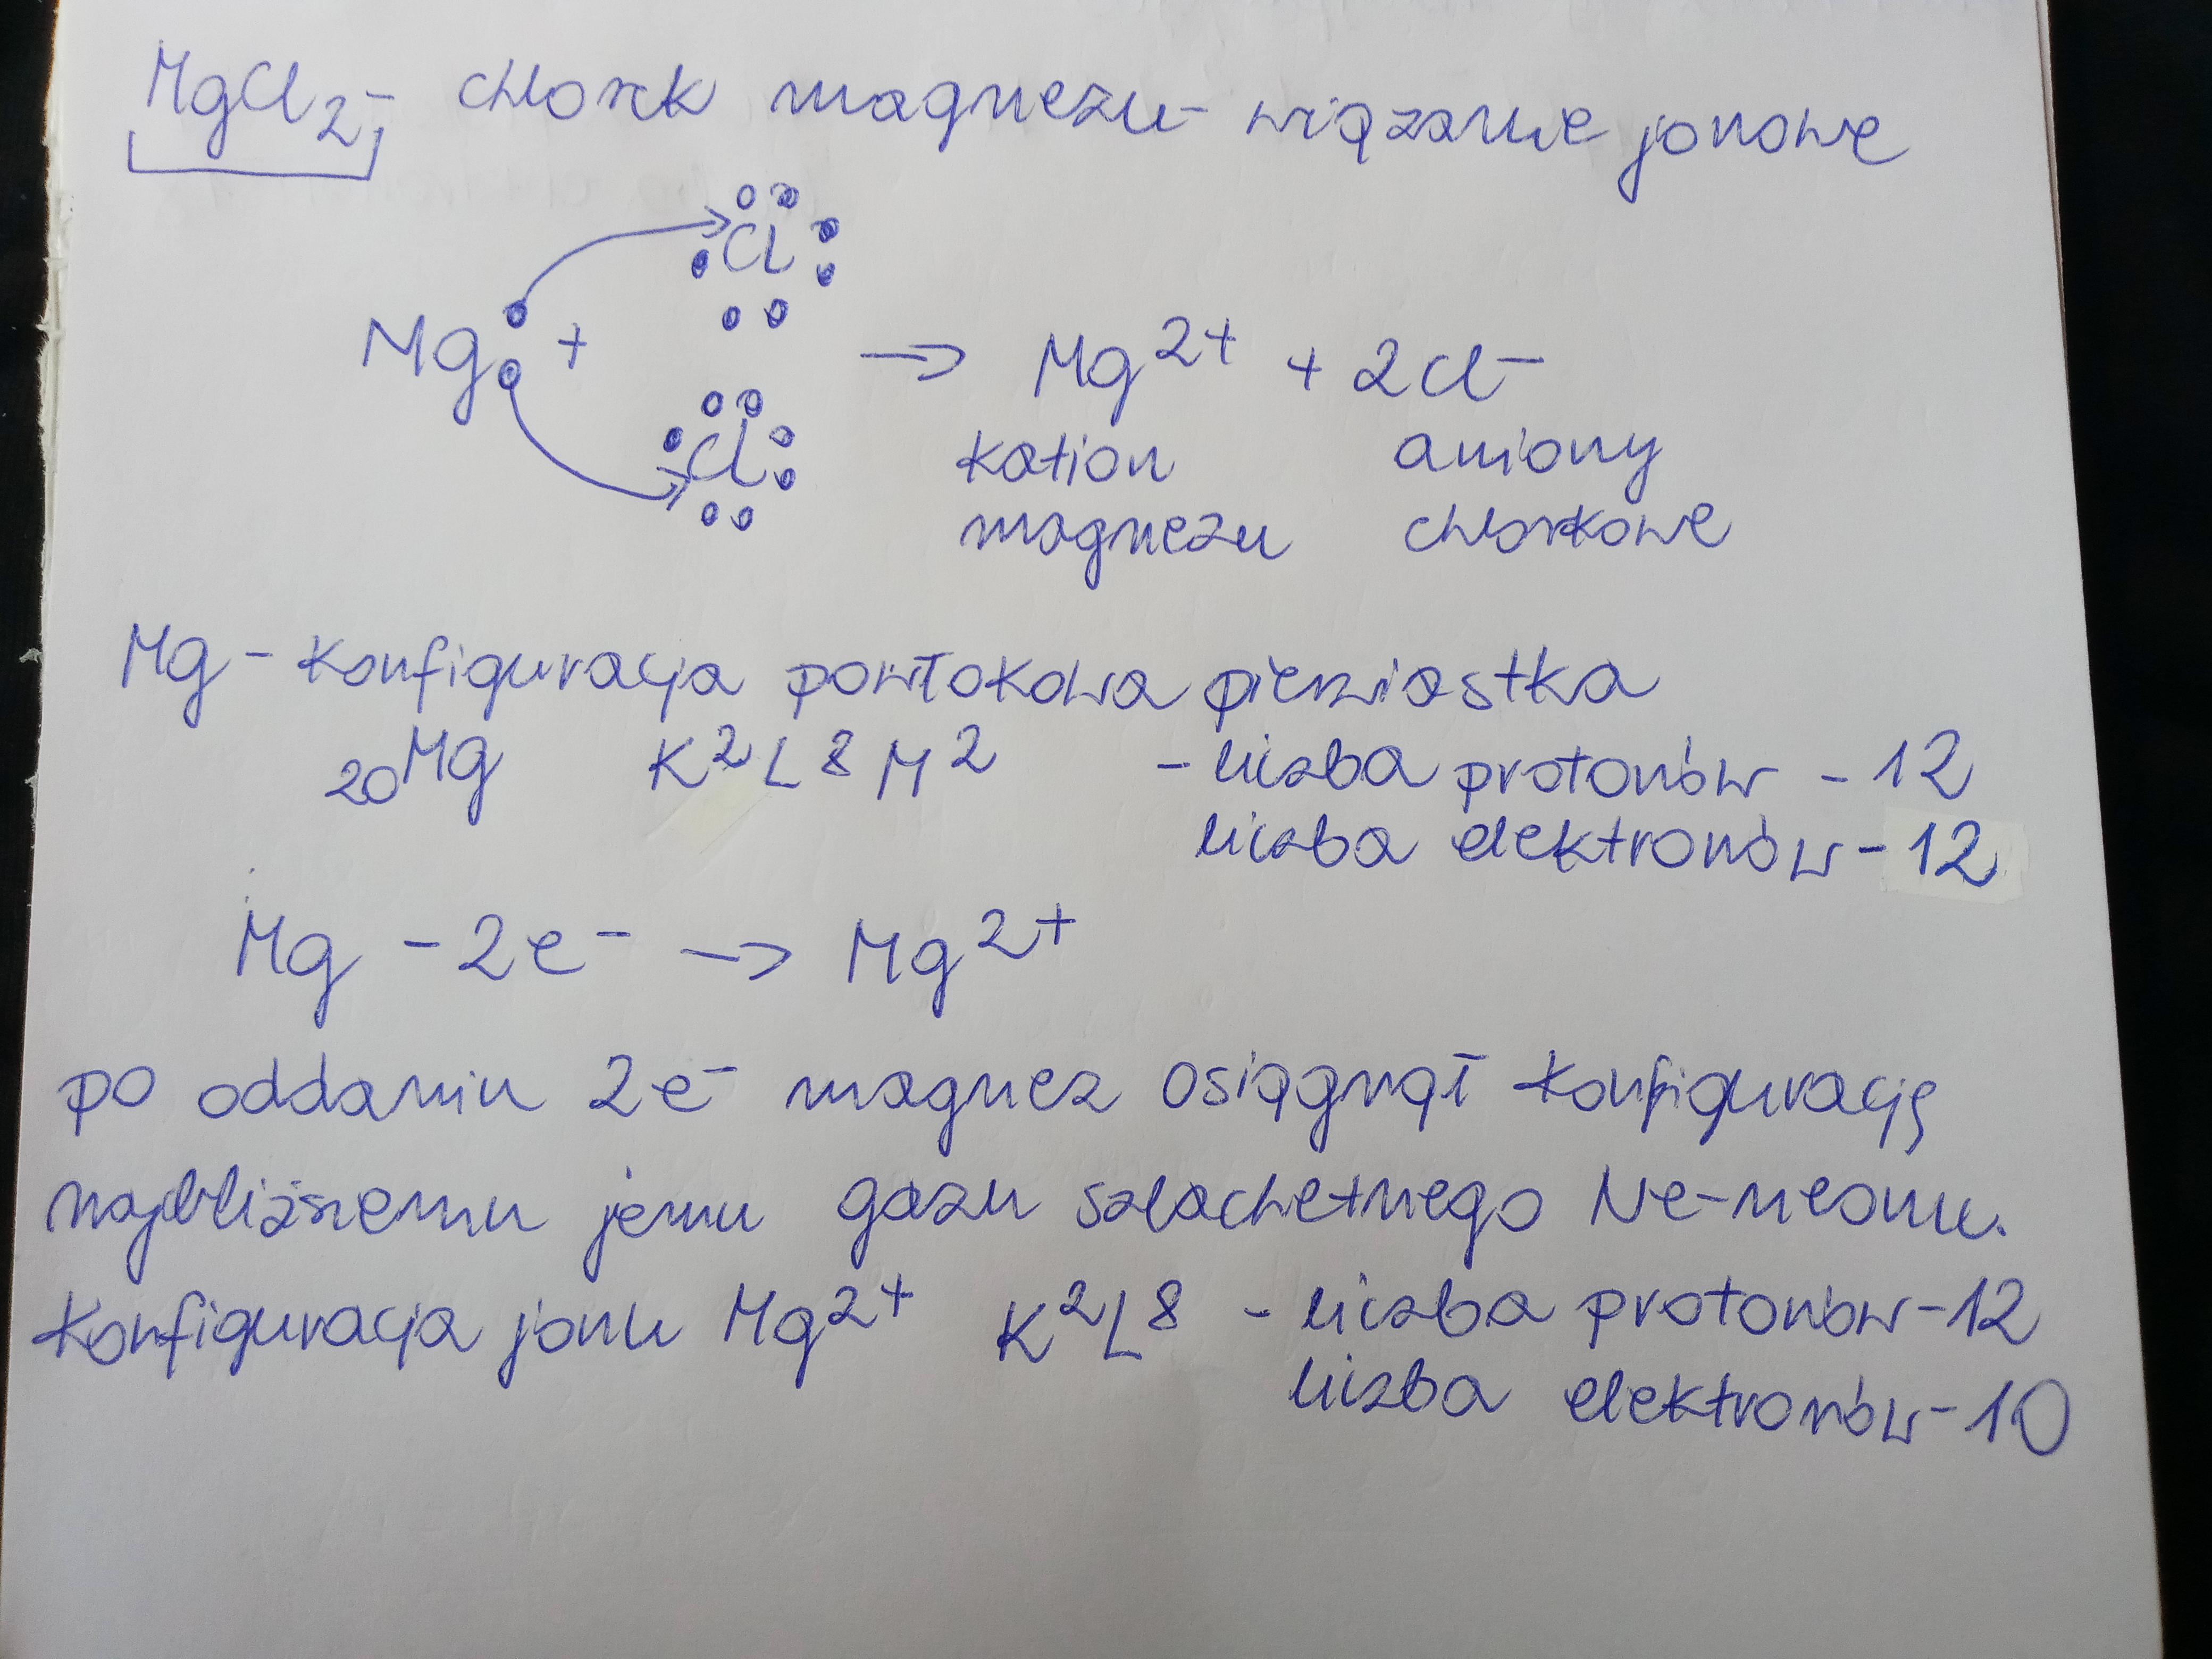 MgCl₂ - chlorek magnezu - wiązanie jonowe
Cl
Mg + → Mg²⁺ + 2Cl⁻
Cl
kation aniony
magnezu chlorkowe
Mg - konfiguracja powłokowa pierwiastka
₂₀Mg K² L⁸ M² - liczba protonów - 12
liczba elektronów - 12
Mg - 2e⁻ → Mg²⁺
po oddaniu 2e⁻ magnez osiągnął konfigurację
najbliższemu jemu gazu szlachetnego Ne - neonu.
Konfiguracja jonu Mg²⁺ K² L⁸ - liczba protonów - 12
liczba elektronów - 10